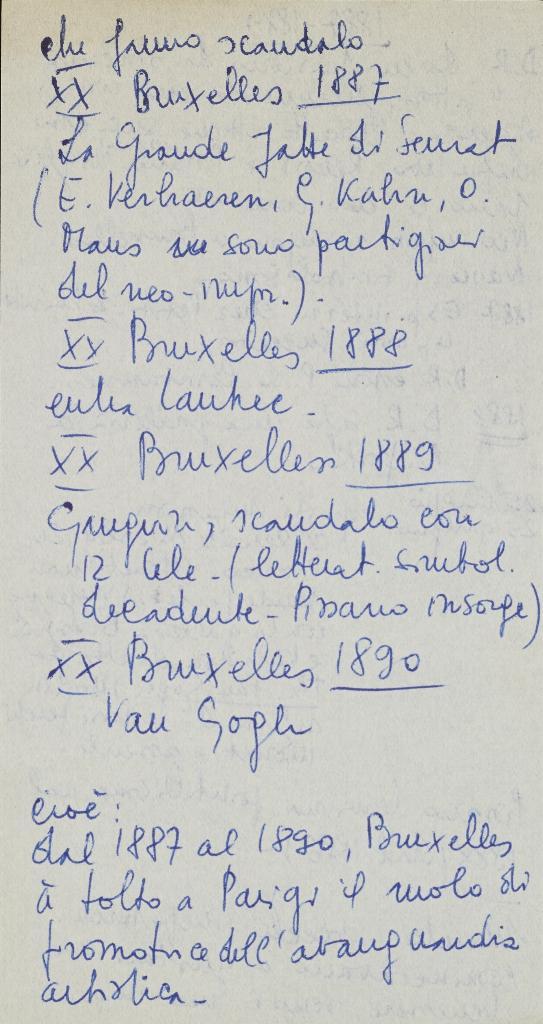 che fanno scandalo
XX Bruxelles 1887
La Grande Jatte di Seurat
(E. Verhaeren, G. Kahn, O.
Maus ne sono partigiani
del neo-impr.).
XX Bruxelles 1888
entra Lautrec -
XX Bruxelles 1889
Gauguin, scandalo con
12 tele - (letterat. simbol.
decadente - Pissarro insorge)
XX Bruxelles 1890
Van Gogh
cioè:
dal 1887 al 1890, Bruxelles
à tolto a Parigi il ruolo di
promotrice dell'avanguardia
artistica -